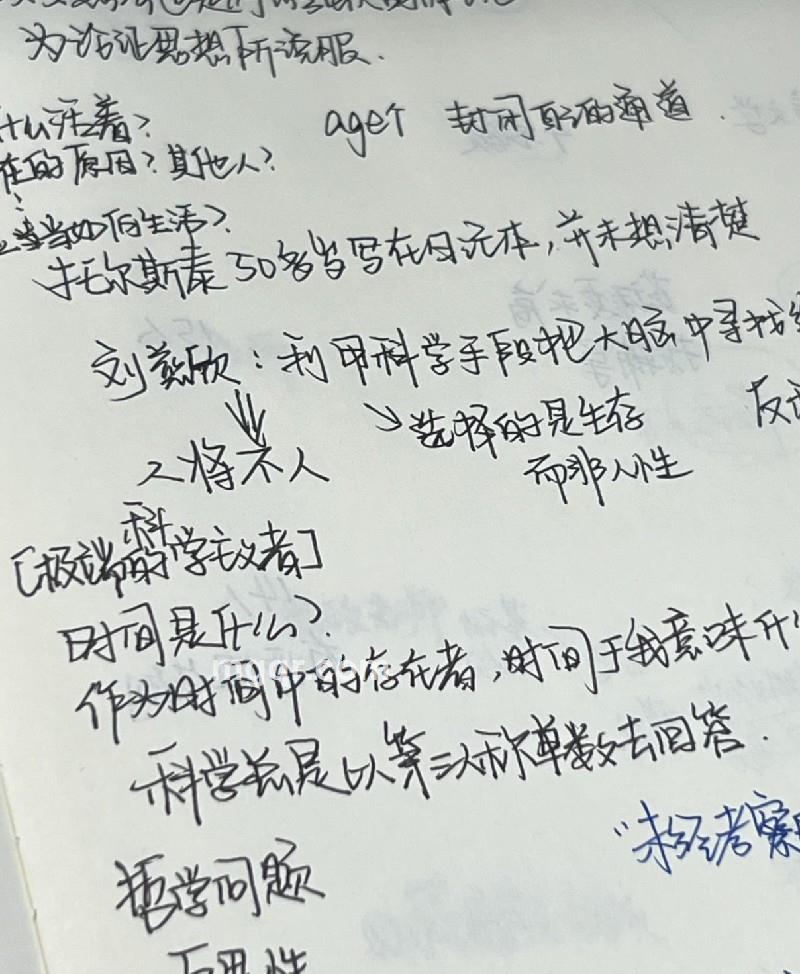 为论证思想所说服.
什么活着?
在的原因?其他人?
当如何生活?
封闭 的通道.
托尔斯泰50多岁写在日记本,并未想清楚
刘慈欣:利用科学手段把大脑中寻找
选择的是生存
而非人性
人将不人
[极端的科学主义者]
时间是什么?
mgqr.com
作为时间中的存在者,时间于我意味什
科学总是以第三人称单数去回答.
"未经考察
哲学问题